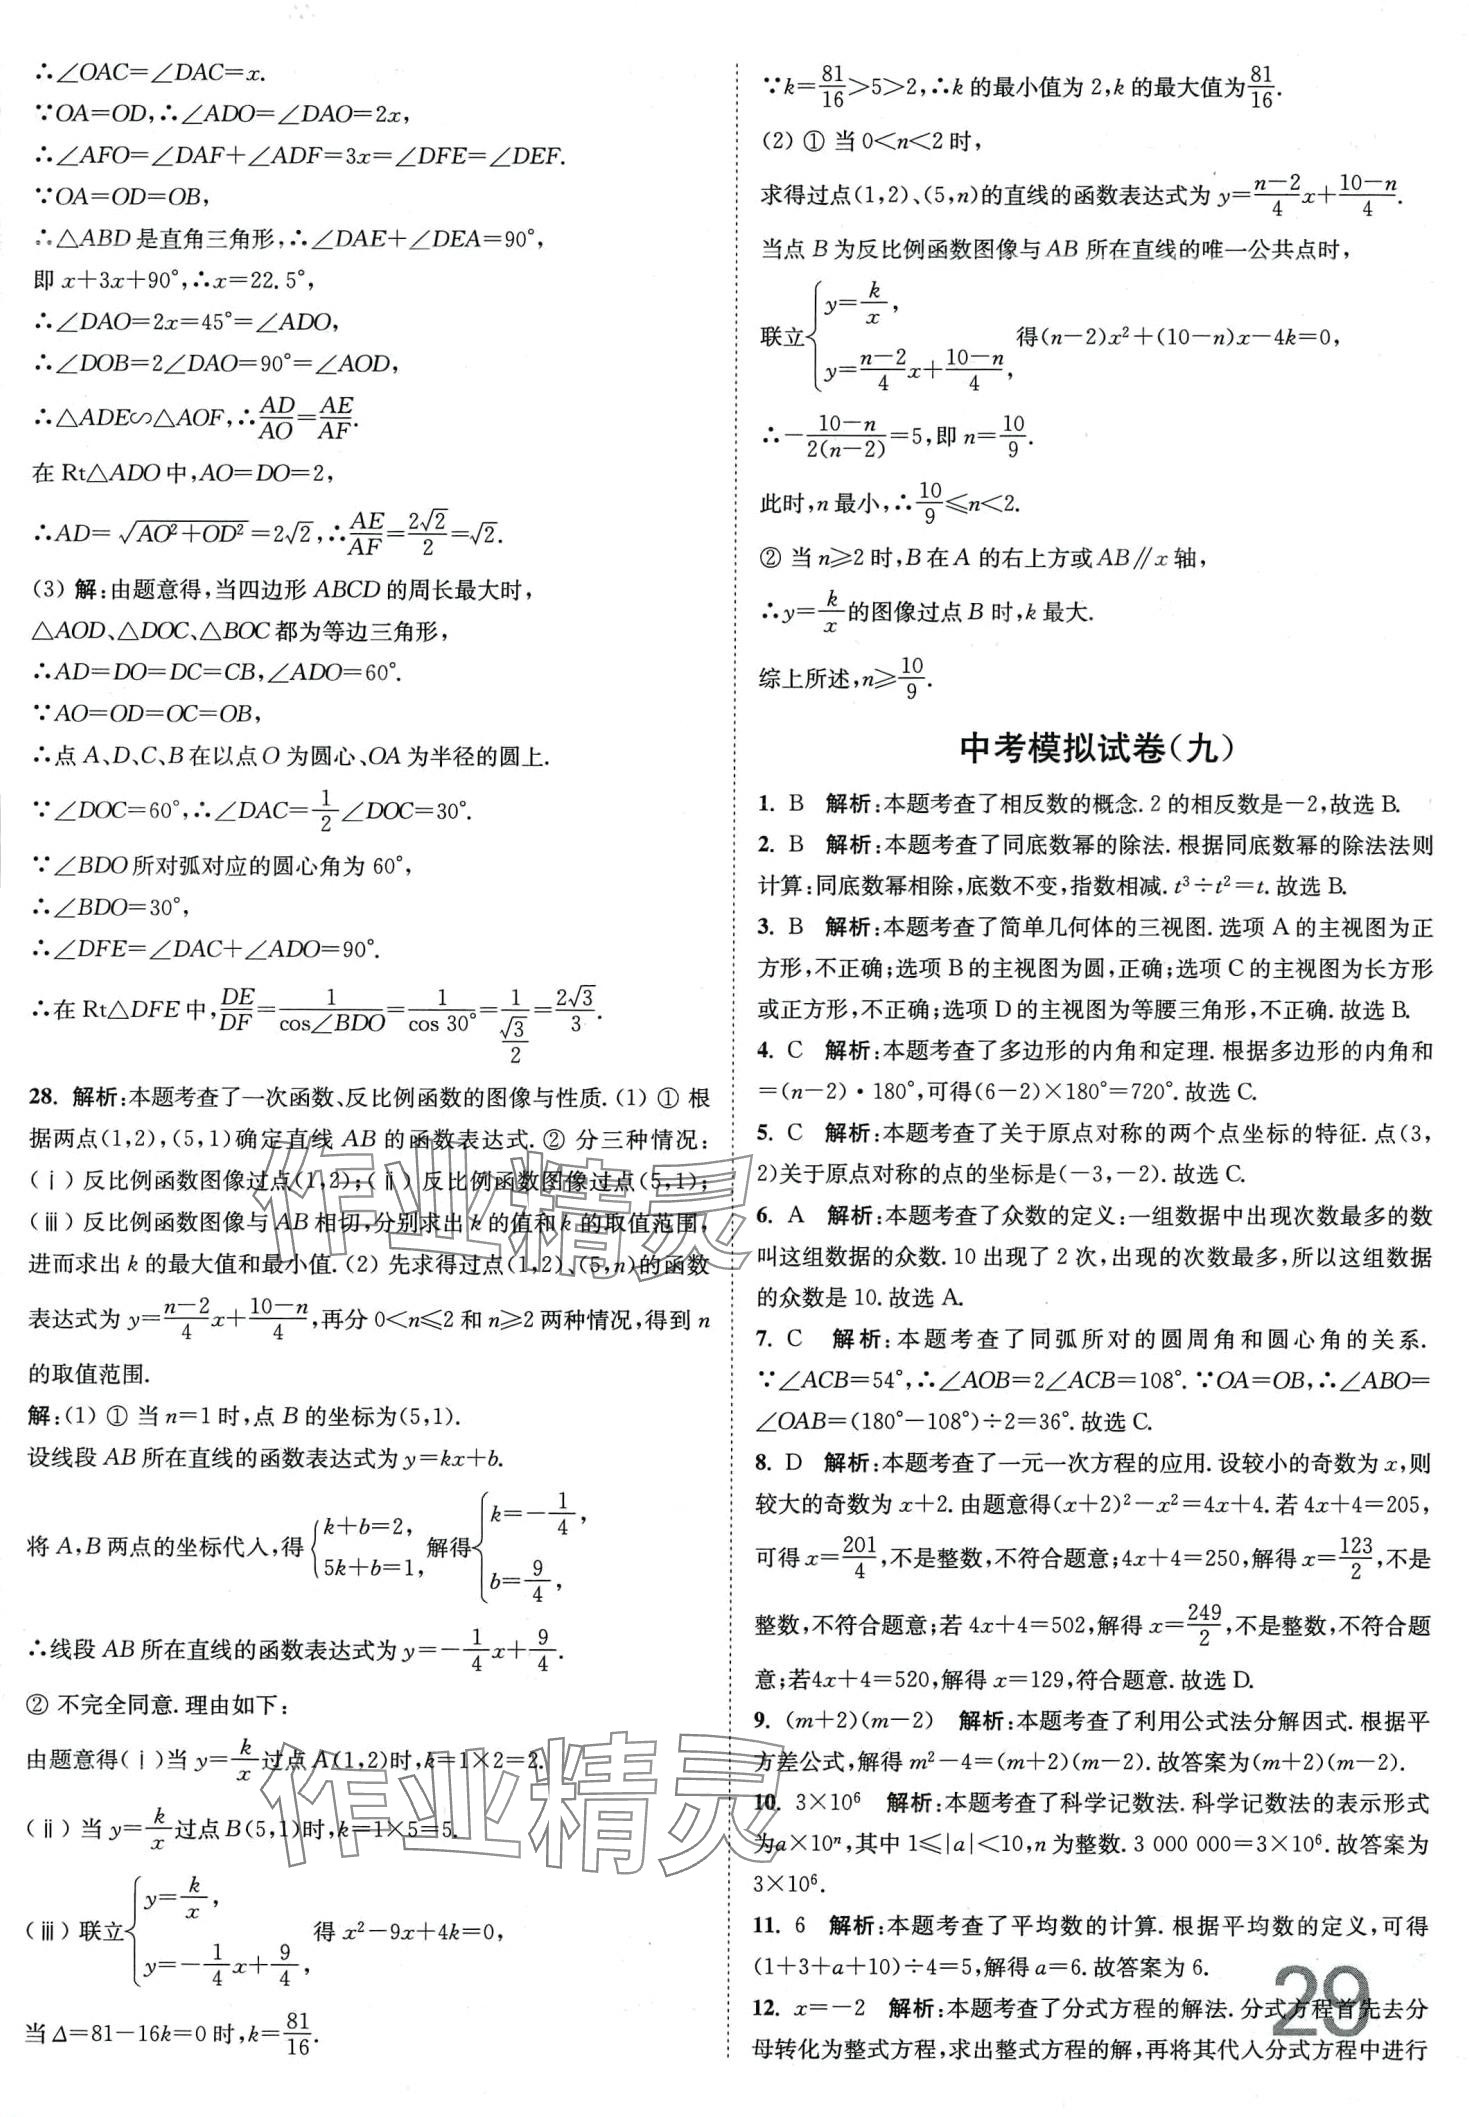 ∴∠OAC=∠DAC=x.
∵OA=OD,∴∠ADO=∠DAO=2x,
∴∠AFO=∠DAF+∠ADF=3x=∠DFE=∠DEF.
∵OA=OD=OB,
∴△ABD是直角三角形,∴∠DAE+∠DEA=90°,
即 x+3x+90°,∴x=22.5°,
∴∠DAO=2x=45°=∠ADO,
∴∠DOB=2∠DAO=90°=∠AOD,
∴△ADE∽△AOF,∴AD/AO=AE/AF.
在 Rt△ADO中,AO=DO=2,
∴AD=√(AO²+OD²)=2√2,∴AE/AF=2√2/2=√2.
(3) 解:由题意得,当四边形 ABCD 的周长最大时,
△AOD、△DOC、△BOC都为等边三角形,
∴AD=DO=DC=CB,∠ADO=60°.
∵AO=OD=OC=OB,
∴点 A、D、C、B在以点O 为圆心、OA为半径的圆上.
∵∠DOC=60°,∴∠DAC=1/2∠DOC=30°.
∵∠BDO所对弧对应的圆心角为 60°,
∴∠BDO=30°,
∴∠DFE=∠DAC+∠ADO=90°.
∴在 Rt△DFE中,DE/DF=1/cos∠BDO=1/cos 30°=1/(√3/2)=2√3/3.
28. 解析:本题考查了一次函数、反比例函数的图像与性质.(1) ① 根
据两点(1,2),(5,1)确定直线 AB 的函数表达式.② 分三种情况:
(ⅰ) 反比例函数图像过点(1,2);(ⅱ) 反比例函数图像过点(5,1);
(ⅲ) 反比例函数图像与 AB 相切,分别求出 k 的值和 k 的取值范围,
进而求出 k 的最大值和最小值.(2) 先求得过点(1,2)、(5,n)的函数
表达式为 y=(n−2)/4 x+(10−n)/4,再分 0<n≤2 和 n≥2 两种情况,得到 n
的取值范围.
解:(1) ① 当 n=1 时,点 B 的坐标为(5,1).
设线段 AB 所在直线的函数表达式为 y=kx+b.
将 A,B 两点的坐标代人,得{k+b=2, 5k+b=1, 解得{k=−1/4, b=9/4,
∴线段 AB 所在直线的函数表达式为 y=−1/4 x+9/4.
② 不完全同意.理由如下:
由题意得(ⅰ)当 y=k/x 过点 A(1,2)时,k=1×2=2.
(ⅱ)当 y=k/x 过点 B(5,1)时,k=1×5=5.
(ⅲ)联立{y=k/x, y=−1/4 x+9/4, 得 x²−9x+4k=0,
当 Δ=81−16k=0 时,k=81/16.
∵k=81/16>5>2,∴k 的最小值为 2,k 的最大值为81/16.
(2) ① 当 0<n<2 时,
求得过点(1,2)、(5,n)的直线的函数表达式为 y=(n−2)/4 x+(10−n)/4.
当点 B 为反比例函数图像与 AB 所在直线的唯一公共点时,
联立{y=k/x, y=(n−2)/4 x+(10−n)/4, 得(n−2)x²+(10−n)x−4k=0,
∴−(10−n)/2(n−2)=5,即 n=10/9.
此时,n 最小,∴10/9≤n<2.
② 当 n≥2 时,B 在 A 的右上方或 AB∥x 轴,
∴y=k/x 的图像过点 B 时,k 最大.
综上所述,n≥10/9.
中考模拟试卷(九)
1. B 解析:本题考查了相反数的概念.2 的相反数是−2,故选 B.
2. B 解析:本题考查了同底数幂的除法.根据同底数幂的除法法则
计算:同底数幂相除,底数不变,指数相减.t³÷t²=t.故选 B.
3. B 解析:本题考查了简单几何体的三视图.选项 A 的主视图为正
方形,不正确;选项 B 的主视图为圆,正确;选项 C 的主视图为长方形
或正方形,不正确;选项 D 的主视图为等腰三角形,不正确.故选 B.
4. C 解析:本题考查了多边形的内角和定理.根据多边形的内角和
=(n−2)·180°,可得(6−2)×180°=720°.故选 C.
5. C 解析:本题考查了关于原点对称的两个点坐标的特征.点(3,
2)关于原点对称的点的坐标是(−3,−2).故选 C.
6. A 解析:本题考查了众数的定义:一组数据中出现次数最多的数
叫这组数据的众数.10 出现了 2 次,出现的次数最多,所以这组数据
的众数是 10.故选 A.
7. C 解析:本题考查了同弧所对的圆周角和圆心角的关系.
∵∠ACB=54°,∴∠AOB=2∠ACB=108°.∵OA=OB,∴∠ABO=
∠OAB=(180°−108°)÷2=36°.故选 C.
8. D 解析:本题考查了一元一次方程的应用.设较小的奇数为 x,则
较大的奇数为 x+2.由题意得(x+2)²−x²=4x+4.若 4x+4=205,
可得 x=201/4,不是整数,不符合题意;4x+4=250,解得 x=123/2,不是
整数,不符合题意;若 4x+4=502,解得 x=249/2,不是整数,不符合题
意;若4x+4=520,解得 x=129,符合题意.故选 D.
9. (m+2)(m−2) 解析:本题考查了利用公式法分解因式.根据平
方差公式,解得 m²−4=(m+2)(m−2).故答案为(m+2)(m−2).
10. 3×10⁶ 解析:本题考查了科学记数法.科学记数法的表示形式
为a×10ⁿ,其中 1≤|a|<10,n 为整数.3 000 000=3×10⁶.故答案为
3×10⁶.
11. 6 解析:本题考查了平均数的计算.根据平均数的定义,可得
(1+3+a+10)÷4=5,解得 a=6.故答案为 6.
12. x=−2 解析:本题考查了分式方程的解法.分式方程首先去分
母转化为整式方程,求出整式方程的解,再将其代人分式方程中进行
29
作业精灵
作业精灵